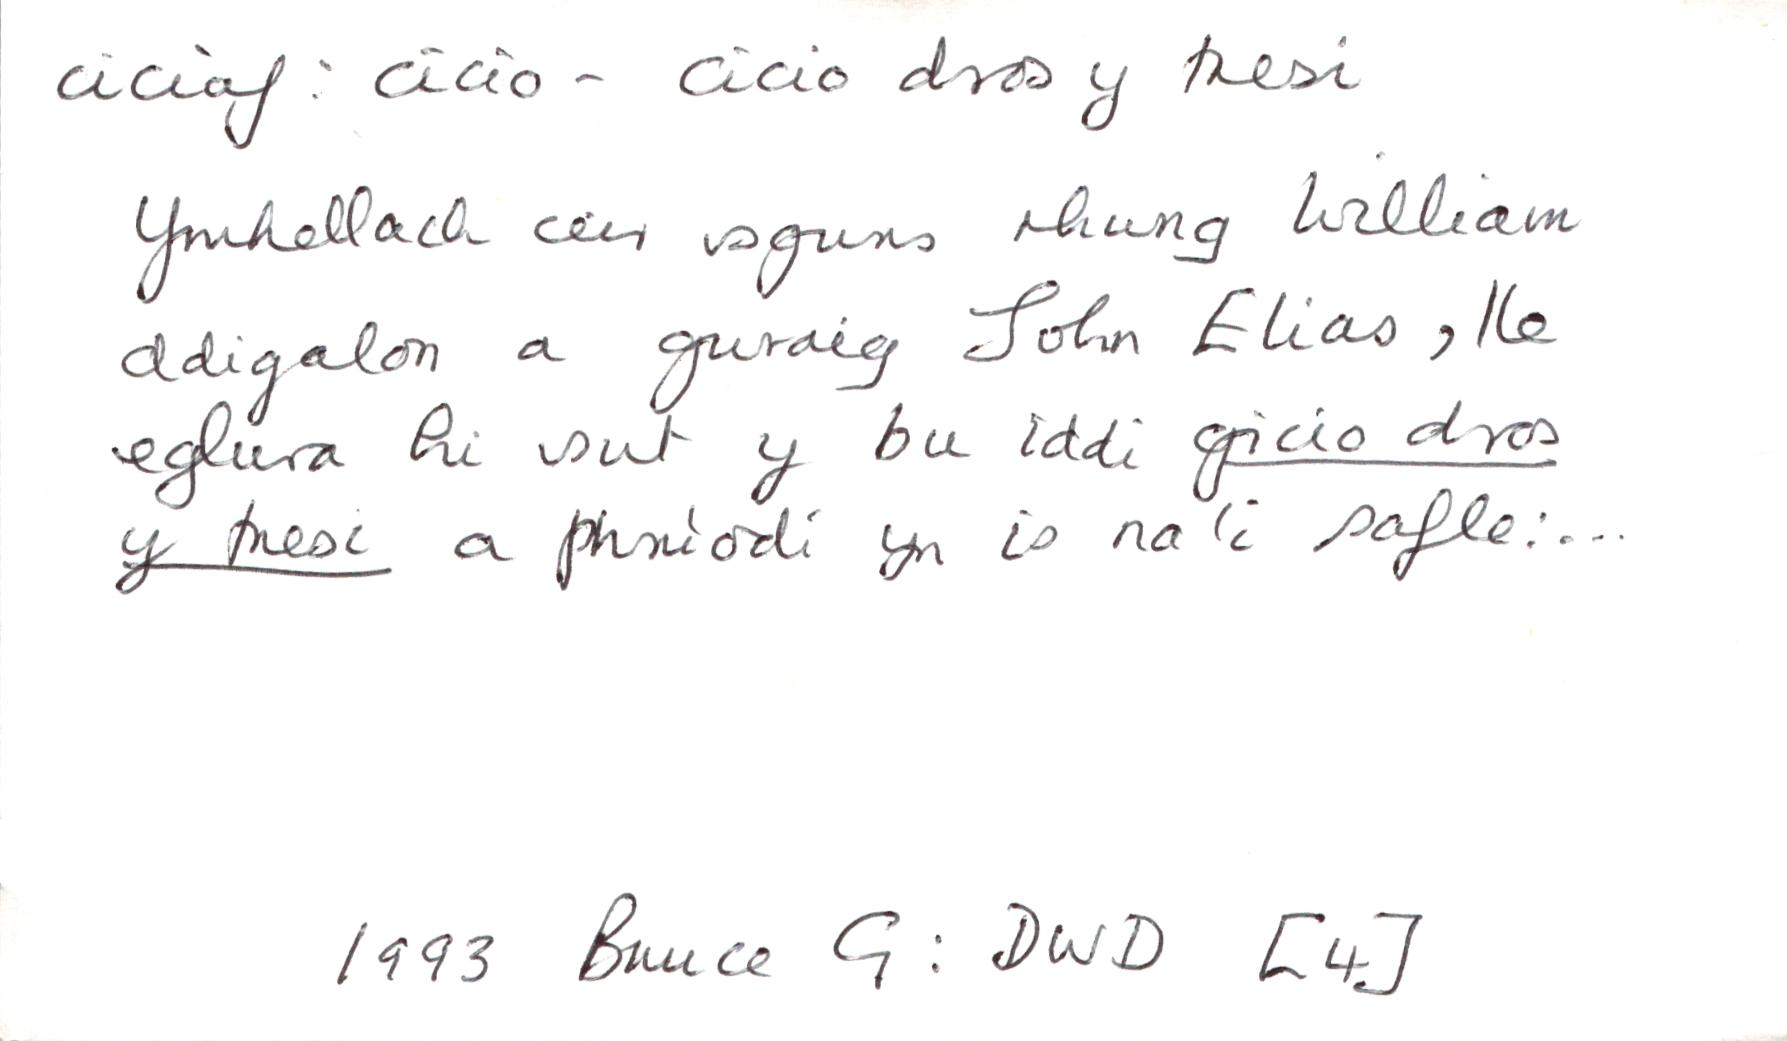 ciciaf: cicio - cicio dros y tresi
Ymhellach ceir sgwrs rhwng William
ddigalon a gwraig John Elias, lle
eglura hi sut y bu iddi gicio dros
y tresi a phriodi yn is na'i safle:...
1993 Bruce G: DWD [4]